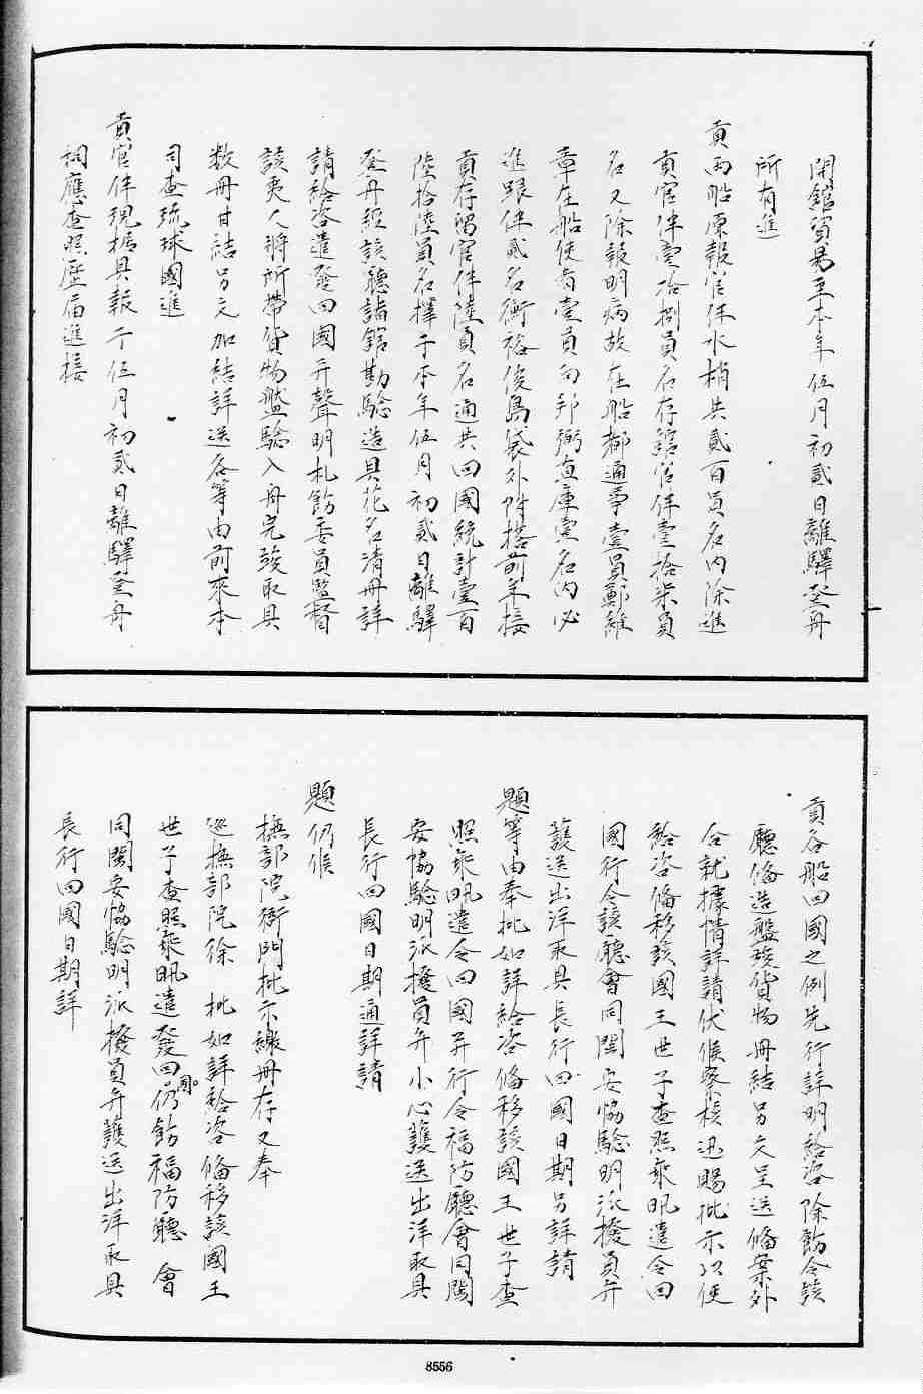 開館貿易至本年伍月初貳日離驛登舟
所有進
貢兩船原報官伴水梢共貳百員名內除進
貢官伴壹拾捌員名存留官伴壹拾柒員
名又除報明病故在船都通事壹員鄭維
章在船使者壹員向邦弼直庫壹名內必
進跟伴貳名衡裕俊島袋外附搭前年接
貢存留官伴陸員名通共回國統計壹百
陸拾陸員名擇于本年伍月初貳日離驛
登舟經該廳詣館勘驗造具花名清冊詳
請給咨遣發回國并聲明札飭委員監督
該夷人將所帶貨物盤驗入舟完竣取具
数冊甘結另文加結詳送各等由前來本
司查琉球國進
貢官伴現據具報于伍月初貳日離驛登舟
祠應查照歷屆進接
貢各船回國之例先行詳明給咨除飭令該
廳俻造盤驗貨物冊結另文呈送俻案外
合就據情詳請伏候察核迅賜批示以便
給咨俻移該國王世子查照乘汛遣令回
國行令該廳會同閩安協驗明派撥員弁
護送出洋取具長行回國日期另詳請
題等由奉批如詳給咨俻移該國王世子查
照乘汛遣令回國并行令福防廳會同閩
安協驗明派撥員弁小心護送出洋取具
長行回國日期通詳請
題仍候
撫部院衙門批示繳冊存又奉
巡撫部院徐 批如詳給咨俻移該國王
世子查照乘汛遣發回國仍飭福防廳 會
同閩安協驗明派撥員弁護送出洋取具
長行回國日期詳
8556